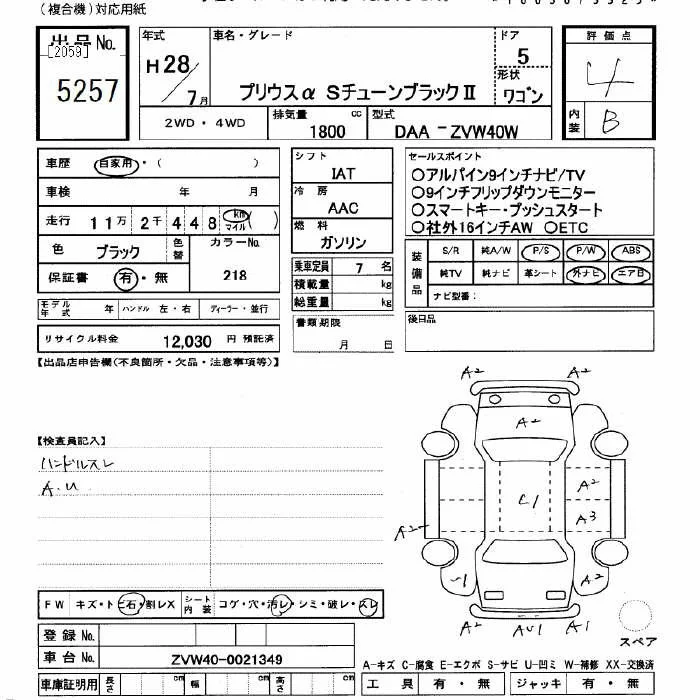 (複合機)対応用紙
出品No.
[2059]
5257
年式
H28/7月
車名・グレード
プリウスα SチューンブラックⅡ
ドア
5
形状
ワゴン
評価点
4
内装
B
2WD・4WD
排気量
1800 cc
型式
DAA-ZVW40W
車歴 自家用・( )
車検 年 月
走行 11万 2千 448 km マイル ( )
色 ブラック 色替 カラーNo. 218
保証書 有・無
モデル年式 年 ハンドル 左・右 ディーラー・並行
リサイクル料金 12,030 円 預託済
シフト
IAT
冷房
AAC
燃料
ガソリン
乗車定員 7 名
積載量 kg
総重量 kg
書類期限
月 日
セールスポイント
○アルパイン9インチナビ/TV
○9インチフリップダウンモニター
○スマートキー・プッシュスタート
○社外16インチAW ○ETC
装備品
S/R 純A/W P/S P/W ABS
純TV 純ナビ 革シート 外ナビ エアB
ナビ型番:
後日品
【出品店申告欄(不良箇所・欠品・注意事項等)】
【検査員記入】
ハンドルスレ
A.U
A2 A2
A2
C1
A2
A3
A2
U1
A2
A2 AU1 A1
スペア
FW キズ・トビ石・割レX シート内装 コゲ・穴・汚レ・シミ・破レ・スレ
登録No.
車台No. ZVW40-0021349
車庫証明用 長さ cm 幅 cm 高さ cm
A-キズ C-腐食 E-エクボ S-サビ U-凹ミ W-補修 XX-交換済
工具 有・無 ジャッキ 有・無